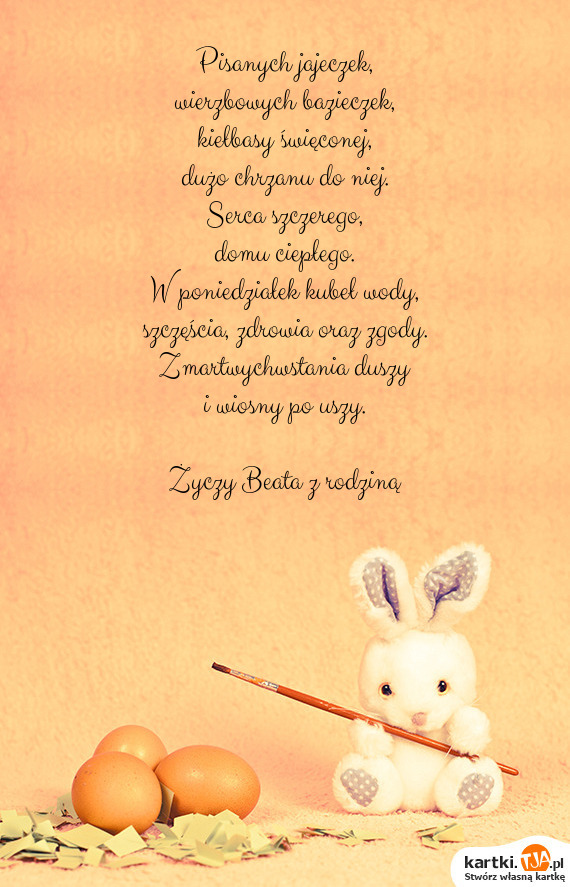 Pisanych jajeczek,
wierzbowych bazieczek,
kiełbasy święconej,
dużo chrzanu do niej.
Serca szczerego,
domu ciepłego.
W poniedziałek kubeł wody,
szczęścia, zdrowia oraz zgody.
Zmartwychwstania duszy
i wiosny po uszy.
Życzy Beata z rodziną
kartki.TJA.pl
Stwórz własną kartkę